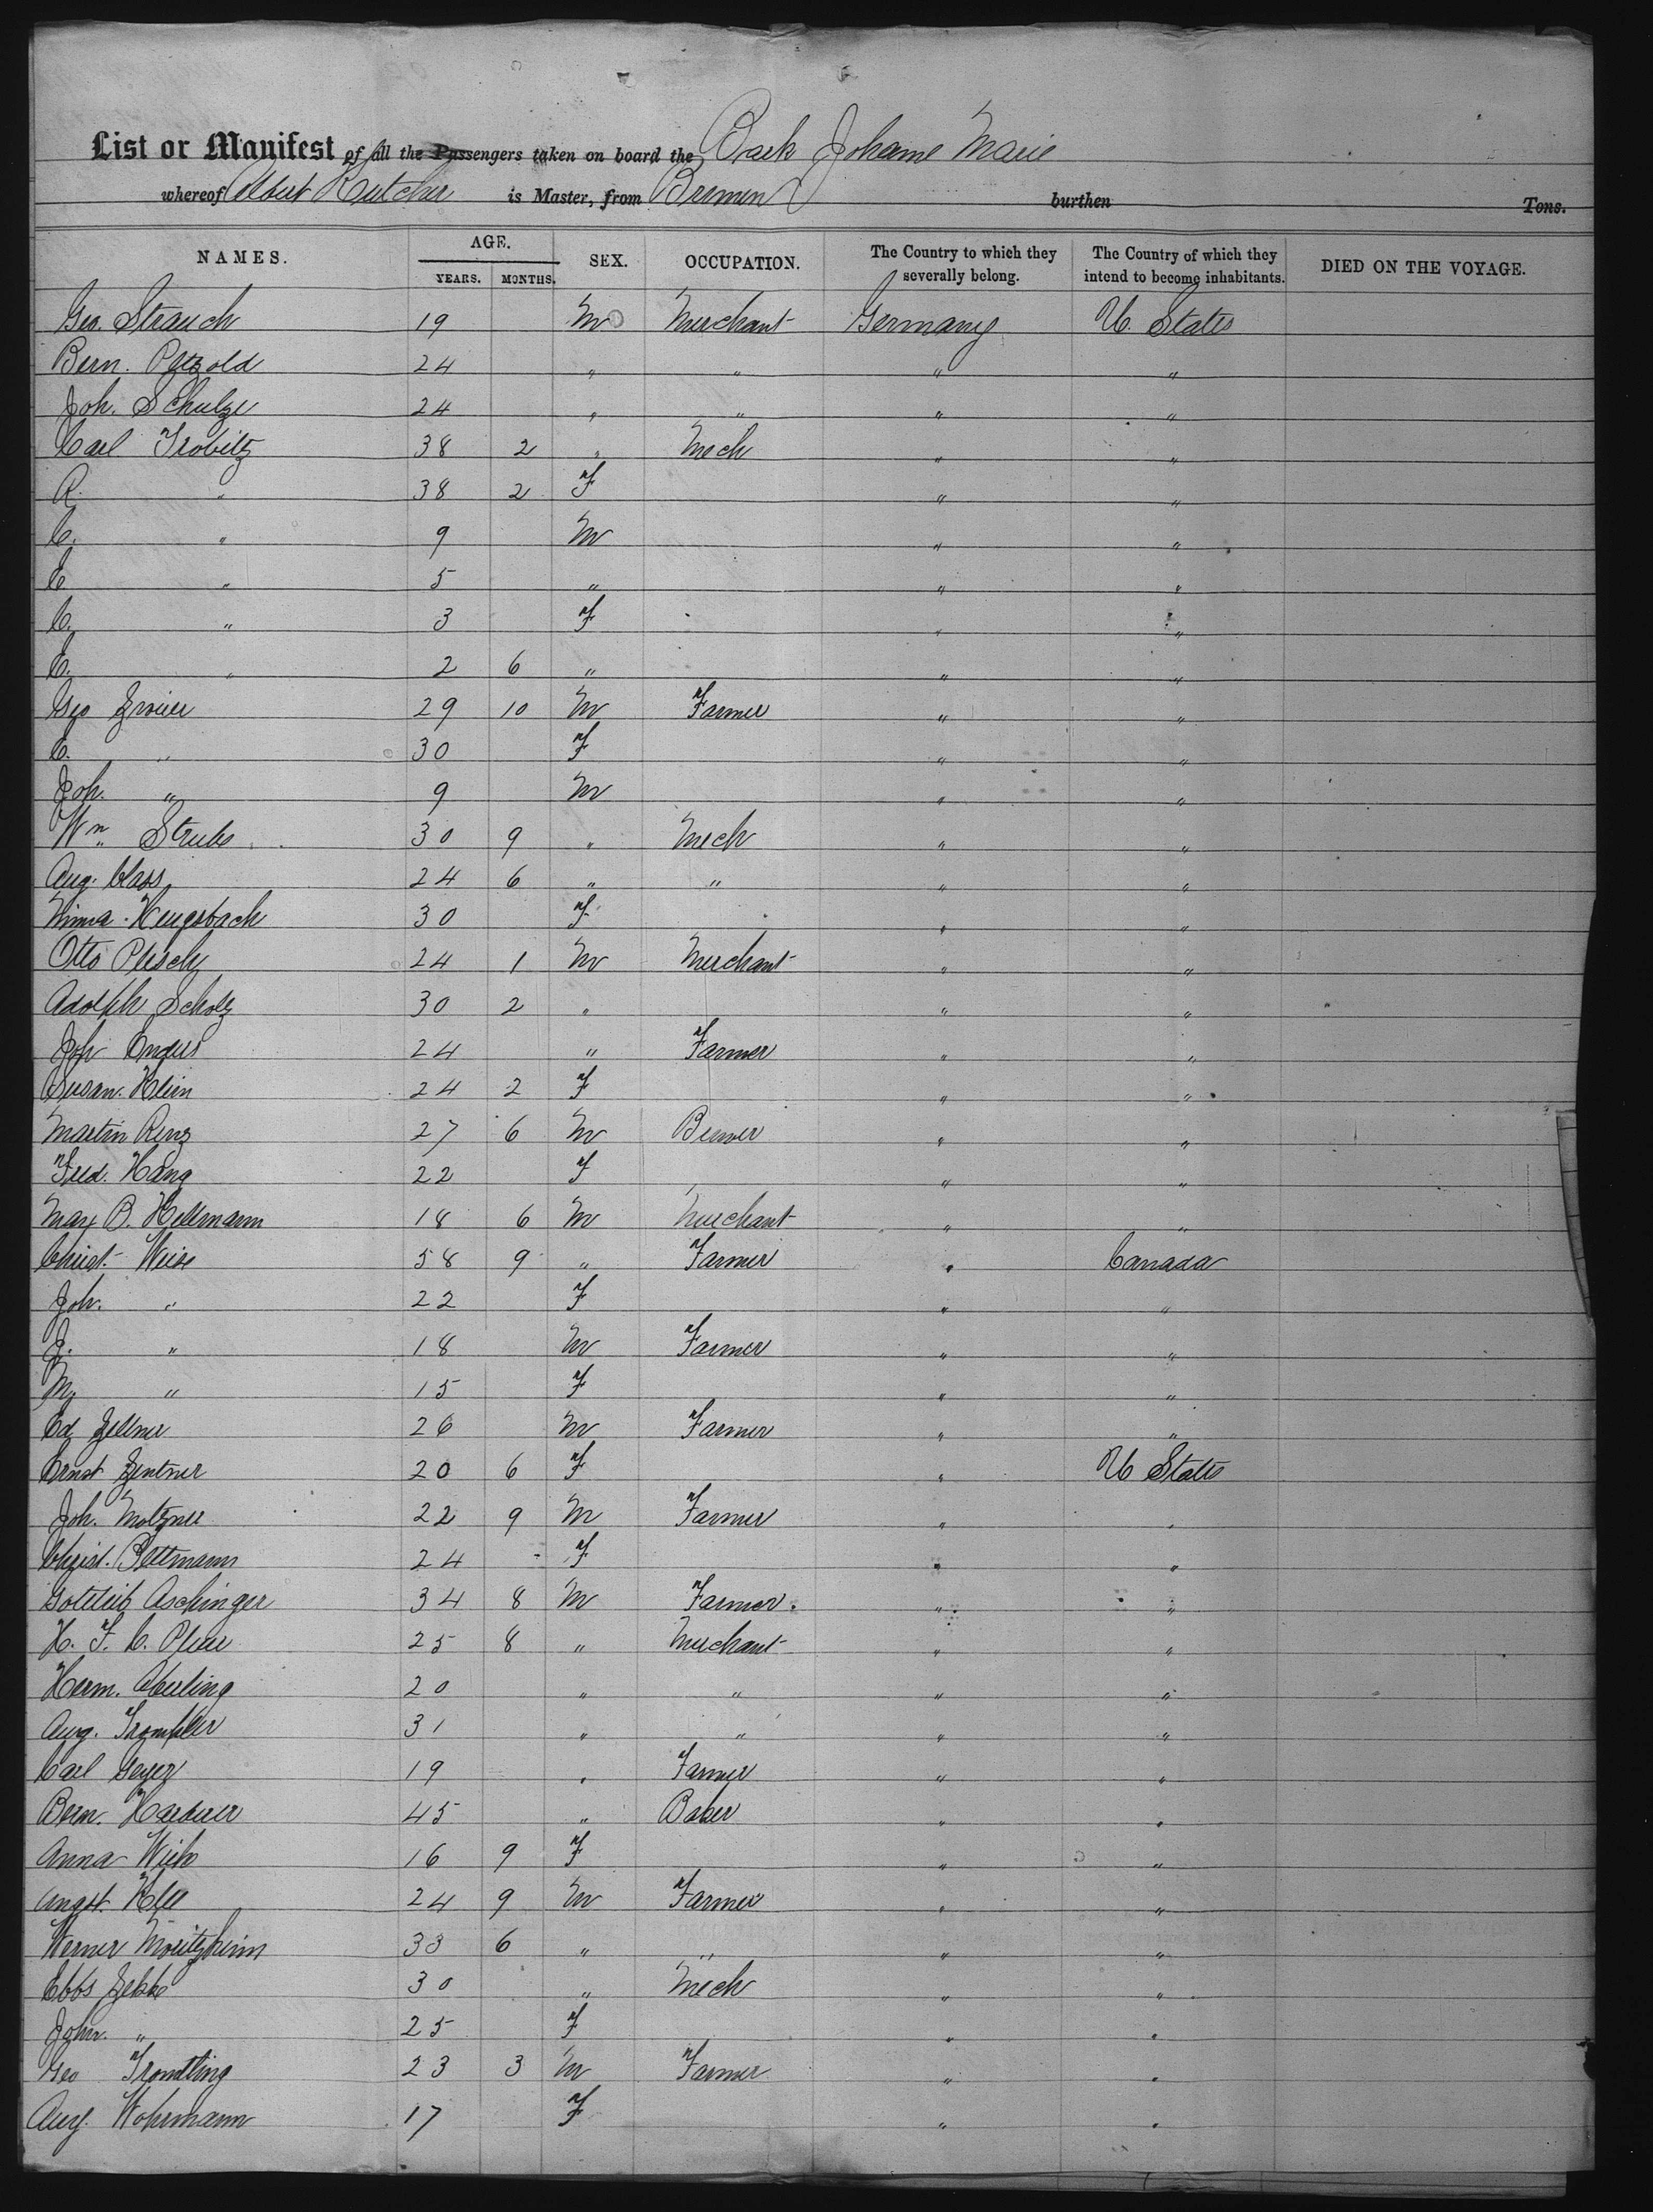 List or Manifest of all the Passengers taken on board the Bark Johanne Marie
whereof Albert Rutcher is Master, from Bremen burthen Tons.
NAMES. AGE. YEARS. MONTHS. SEX. OCCUPATION. The Country to which they severally belong. The Country of which they intend to become inhabitants. DIED ON THE VOYAGE.
Geo. Strauch 19 M Merchant Germany U. States
Bern. Petzold 24 " " " "
Joh. Schulze 24 " " " "
Carl Trobitz 38 2 " Mech " "
R. " 38 2 F " "
C. " 9 M " "
E " 5 " " "
C. " 3 F " "
C. " 2 6 " " "
Geo 29 10 M Farmer " "
C. " 30 F " "
Joh. " 9 M " "
Wm. Strube 30 9 " Mech " "
Aug. Class 24 6 " " " "
Minna Hengsbach 30 F " "
Otto Plesch 24 1 M Merchant " "
Adolph Scholz 30 2 " " "
Joh Enders 24 " Farmer " "
Susan. Klein 24 2 F " "
Martin Renz 27 6 M Brewer " "
Fred. Hang 22 F " "
Max B. Hellmann 18 6 M Merchant " "
Christ. Weise 58 9 " Farmer " Canada
Joh. " 22 F " "
J. " 18 M Farmer " "
M " 15 F " "
Ed Zellmer 26 M Farmer " "
Ernst Zentner 20 6 F " U States
Joh. Motzner 22 9 M Farmer " "
Christ. Bettmann 24 - F " "
Gottlieb Aschinger 34 8 M Farmer " "
H. F. C. 25 8 " Merchant " "
Herm. 20 " " " "
Aug. Trompler 31 " " " "
Carl Geyer 19 " Farmer " "
Bern. 45 " Baker " "
Anna Wich 16 9 F " "
August. Klee 24 9 M Farmer " "
Werner Moritzheim 33 6 " " " "
Ebbs Jebbe 30 " Mech " "
John. " 25 F " "
Geo Trondling 23 3 M Farmer " "
Aug. Wohrmann 17 F " "